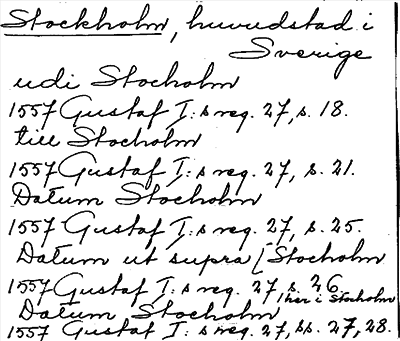 Stockholm, huvudstad i
Sverige
udi Stocholm
1557 Gustaf I:s reg. 27, s. 18.
till Stocholm
1557 Gustaf I:s reg. 27, s. 21.
Datum Stocholm
1557 Gustaf I:s reg. 27, s. 25.
Datum ut supra [Stocholm
1557 Gustaf I:s reg. 27, s. 26.
här i Stocholm
Datum Stocholm
1557 Gustaf I:s reg. 27, ss. 27, 28.